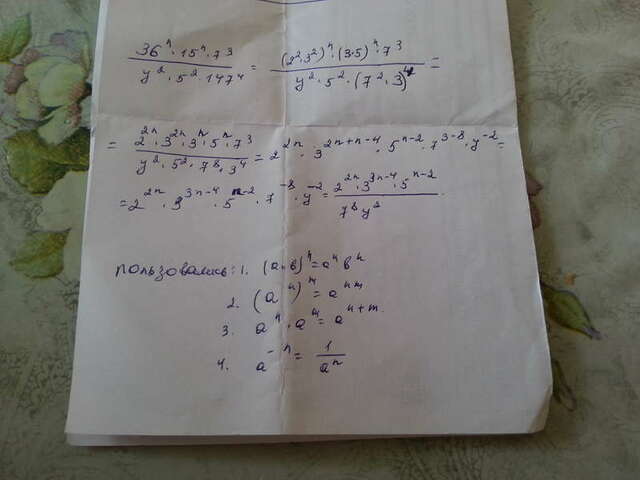 36ⁿ·15ⁿ·7³ / y²·5²·147⁴ = (2²·3²)ⁿ·(3·5)ⁿ·7³ / y²·5²·(7²·3)⁴ =
= 2²ⁿ·3²ⁿ·3ⁿ·5ⁿ·7³ / y²·5²·7⁸·3⁴ = 2²ⁿ·3²ⁿ⁺ⁿ⁻⁴·5ⁿ⁻²·7³⁻⁸·y⁻² =
= 2²ⁿ·3³ⁿ⁻⁴·5ⁿ⁻²·7⁻⁸·y⁻² = 2²ⁿ·3³ⁿ⁻⁴·5ⁿ⁻² / 7⁸y²
пользовались: 1. (a·b)ⁿ = aⁿbⁿ
2. (aⁿ)ᵐ = aⁿᵐ
3. aⁿ·aᵐ = aⁿ⁺ᵐ
4. a⁻ⁿ = 1 / aⁿ